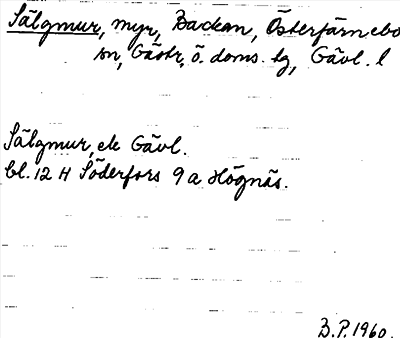 Sälgmur, myr, Backan, Österfärnebo
sn, Gästr, ö. doms. tg, Gävl. l
Sälgmur, ek Gävl.
bl. 12 H Söderfors 9 a Högnäs.
B.P. 1960.